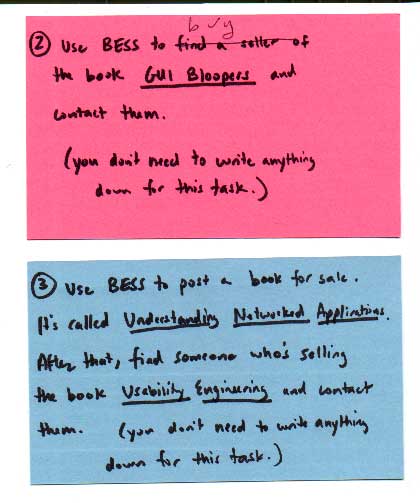 buy
② Use BESS to find a seller of
the book GUI Bloopers and
contact them.
(you don't need to write anything
down for this task.)
③ Use BESS to post a book for sale.
It's called Understanding Networked Applications.
After that, find someone who's selling
the book Usability Engineering and contact
them. (you don't need to write anything
down for this task.)